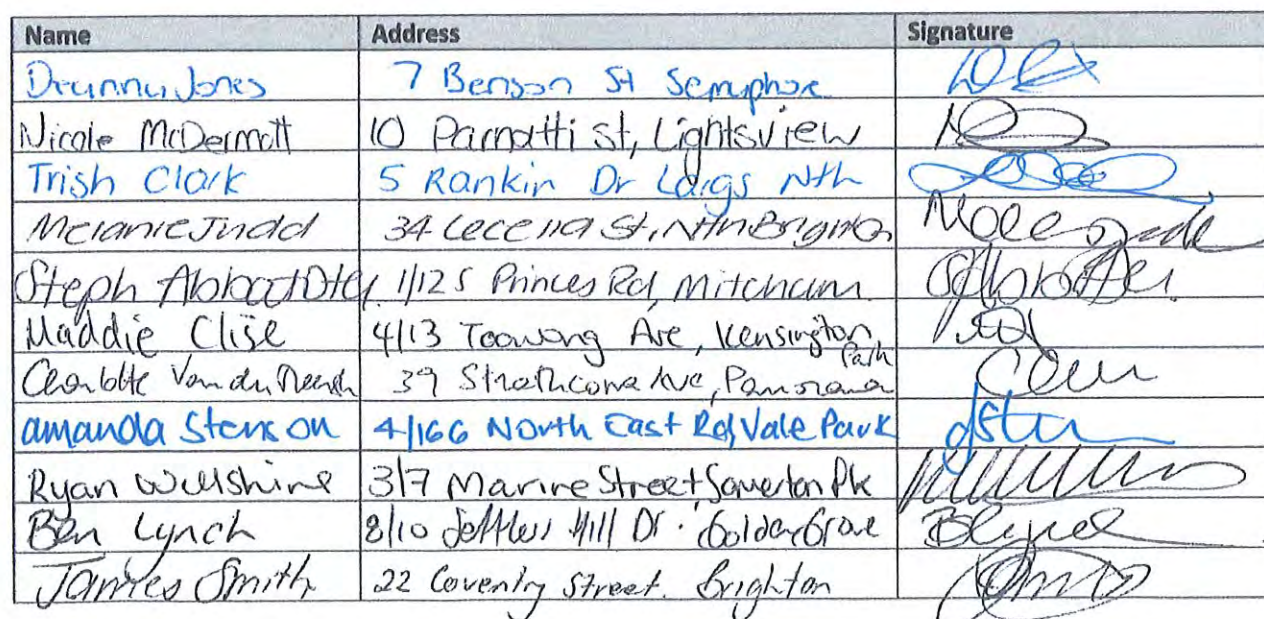 Name Address Signature
Deanna Jones 7 Benson St Semaphore
Nicole McDermott 10 Parnatti st, Lightsview
Trish Clark 5 Rankin Dr Largs Nth
Melanie Judd 34 St, Nth Brighton
Steph 1/125 Princes Rd, Mitcham
Maddie Clise 4/13 Toowong Ave, Kensington Park
Charlotte 39 Strathcona Ave, Panorama
amanda Stenson 4/166 North East Rd, Vale Park
Ryan Willshire 3/7 Marine Street Somerton Pk
Ben Lynch 8/10 Hill Dr. Golden Grove
James Smith 22 Coventry Street. Brighton